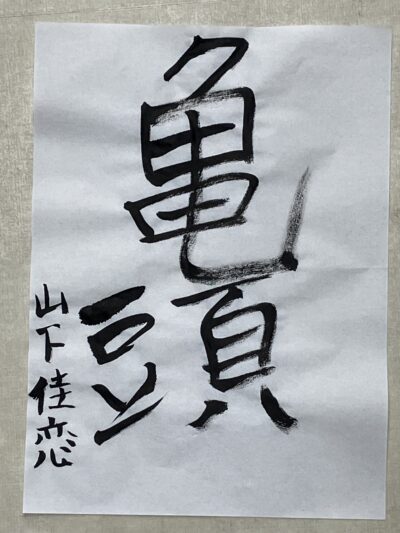 亀頭
山下佳恋